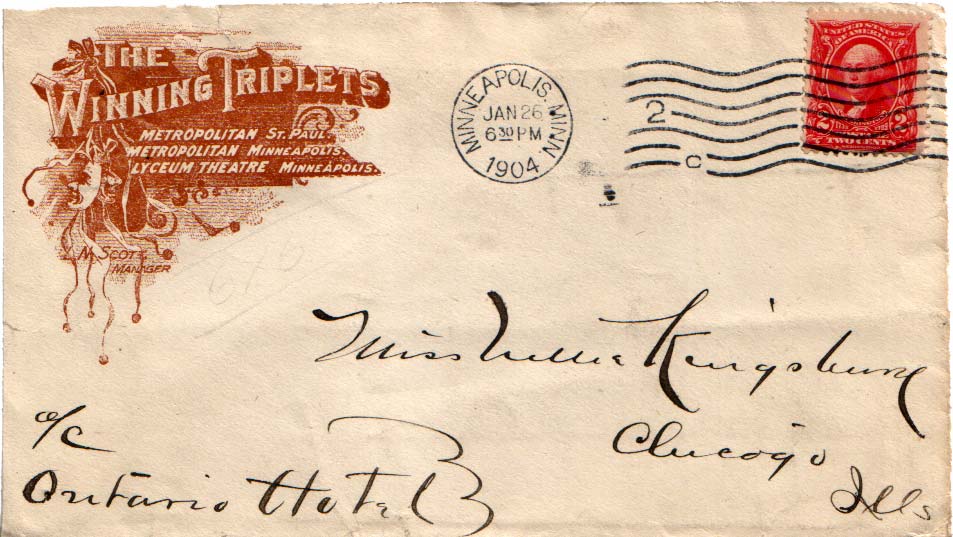 THE
WINNING TRIPLETS
METROPOLITAN ST. PAUL.
METROPOLITAN MINNEAPOLIS.
LYCEUM THEATRE MINNEAPOLIS.
SCOTT
MANAGER
MINNEAPOLIS, MINN
JAN 26
6 30 PM
1904
2
C
UNITED STATES
OF AMERICA
2 2
TWO CENTS
Miss Nellie Kingsbury
Chicago
Ills
c/o
Ontario Hotel